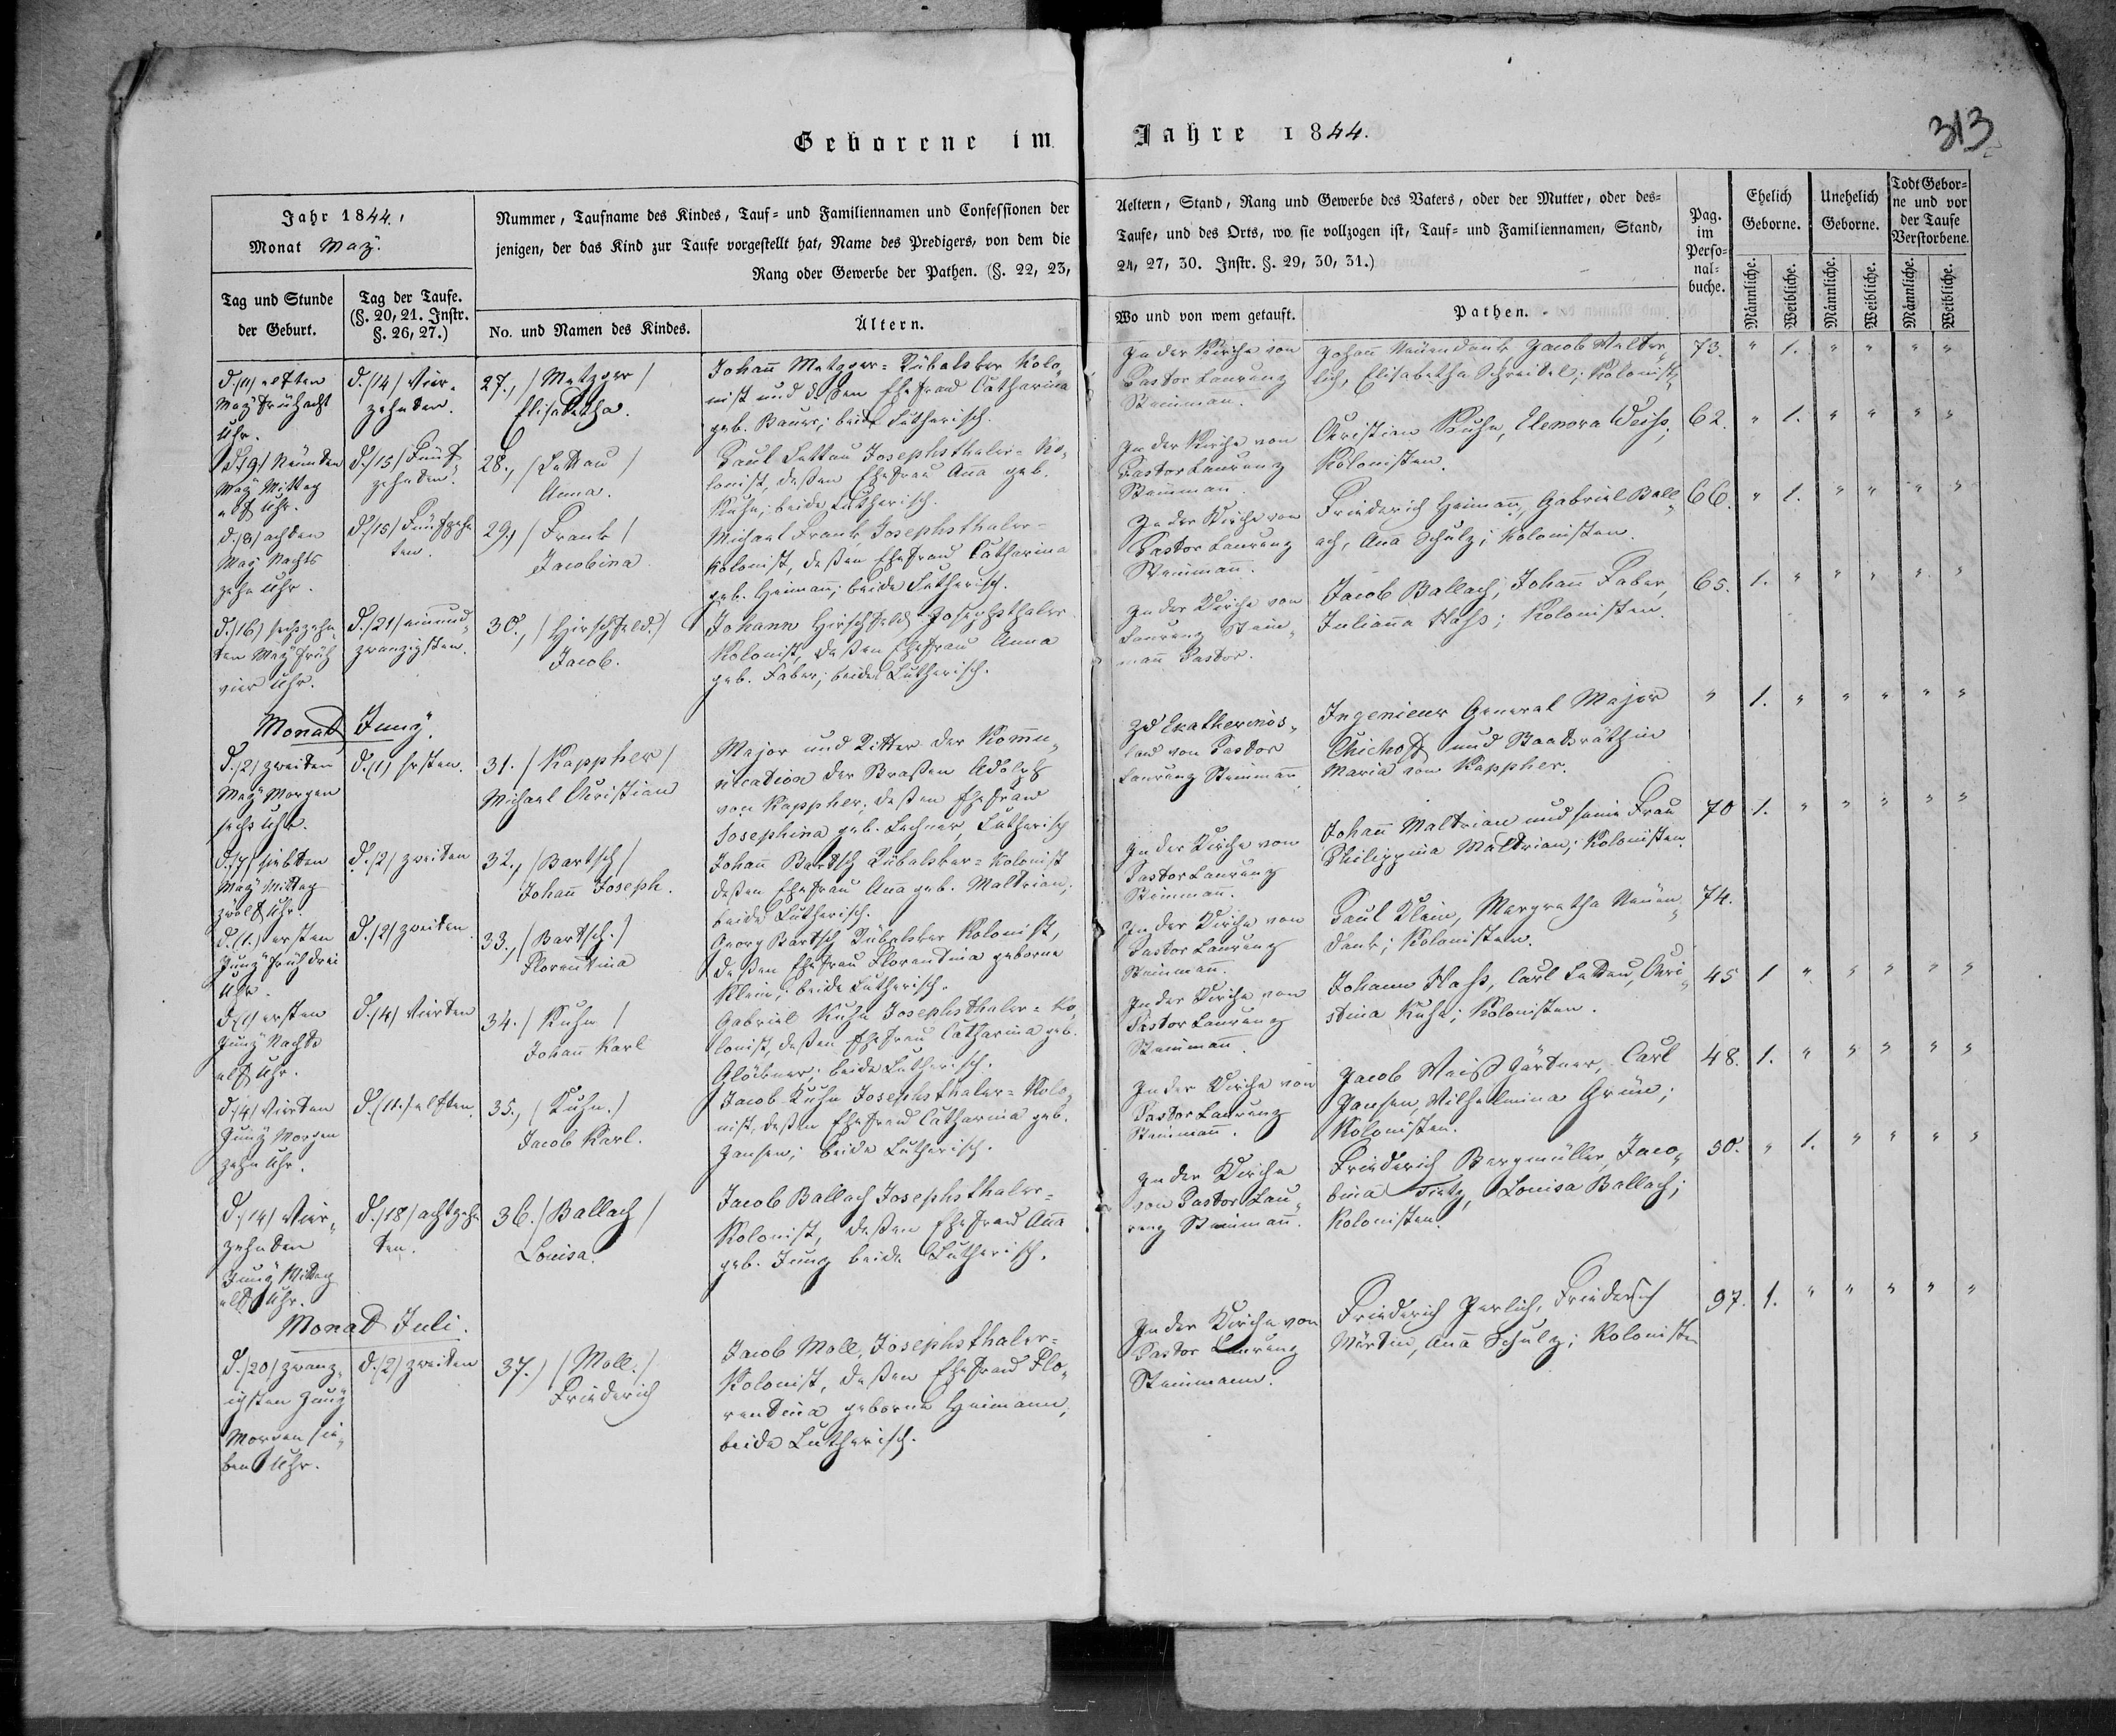 Geborene im Jahre 1844.
313
Jahr 1844.
Monat May.
Nummer, Taufname des Kindes, Tauf- und Familiennamen und Confessionen der
jenigen, der das Kind zur Taufe vorgestellt hat, Name des Predigers, von dem die
Rang oder Gewerbe der Pathen. (§. 22, 23,
Aeltern, Stand, Rang und Gewerbe des Vaters, oder der Mutter, oder des-
Taufe, und des Orts, wo sie vollzogen ist, Tauf- und Familiennamen, Stand,
24, 27, 30. Instr. §. 29, 30, 31.)
Pag.
im
Perso-
nal-
buche.
Ehelich
Geborne.
Unehelich
Geborne.
Todt Gebor-
ne und vor
der Taufe
Verstorbene.
Tag und Stunde
der Geburt.
Tag der Taufe.
(§. 20, 21. Instr.
§. 26, 27.)
No. und Namen des Kindes.
Ältern.
Wo und von wem getauft.
Pathen.
Männliche.
Weibliche.
Männliche.
Weibliche.
Männliche.
Weibliche.
d. (11) elften
May früh acht
Uhr.
d. (14) Vier-
zehnten.
27., (Metzger)
Elisabetha.
Johann Metzger Kolo-
nist und deßen Ehefrau Catharina
geb. Bauer; beide Lutherisch.
In der Kirche von
Pastor Laurenz
Steinmann.
Johann Neuendank, Jacob
Elisabetha Schreidel; Kolonist
73. " 1. " " " "
d. (9) Neünten
May Mittag
elf Uhr.
d. (15) Fünf-
zehnten.
28., (Lettau)
Anna.
Paul Lettau Josephsthaler-Ko-
lonist, deßen Ehefrau Anna geb.
Kuhn; beide Lutherisch.
In der Kirche von
Pastor Laurenz
Steinmann.
Christian Kuhn, Elenora Weiss;
Kolonisten.
62. " 1. " " " "
d. (8) achten
May Nachts
zehn Uhr.
d. (15) Fünfzehn
ten.
29., (Frank)
Jacobina.
Michael Frank, Josephsthaler-
Kolonist, deßen Ehefrau Catharina
geb. Heimann; beide Lutherisch.
In der Kirche von
Pastor Laurenz
Steinmann.
Friederich Heimann, Gabriel Ball-
ach, Anna Schulz; Kolonisten.
66. " 1. " " " "
d. (16) sechszehn-
ten May früh
vier Uhr.
d. (21) einund-
zwanzigsten.
30., (Hirschfeld.)
Jacob.
Johann Hirschfeld Josephsthaler
Kolonist, deßen Ehefrau Anna
geb. Faber; beide Lutherisch.
In der Kirche von
Laurenz Stein-
mann Pastor.
Jacob Ballach, Johann Faber,
Julianna Hass; Kolonisten.
65. 1. " " " " "
Monat Juny.
d. (2) zweiten
May Morgen
sechs Uhr.
d. (1) Ersten.
31. (Kappher)
Michael Christian
Major und Ritter der Kommu-
nication der Straßen Adolph
von Kappher, deßen Ehefrau
Josephina geb. Lechner, Lutherisch
zu Ekatherinos-
lau von Pastor
Laurenz Steinmann
Ingenieur General Major
und Staatsräthin
Maria von Kappher.
" 1. " " " " "
d. (7) siebten
May Mittag
zwölf Uhr.
d. (2) zweiten
32., (Bartsch)
Johann Joseph.
Johann Bartsch Kolonist
deßen Ehefrau Anna geb. Maltrian;
beide Lutherisch.
In der Kirche von
Pastor Laurenz
Steinmann.
Johann Maltrian und seine Frau
Philippina Maltrian; Kolonisten.
70 1. " " " " "
d. (1.) ersten
Juny früh drei
Uhr.
d. (2) zweiten.
33., (Bartsch.)
Florentina
Georg Bartsch Kolonist,
deßen Ehefrau Florentina geborne
Klein; beide Lutherisch.
In der Kirche von
Pastor Laurenz
Steinmann.
Paul Klein, Margretha Neuen-
dank; Kolonisten.
74.
d. (1) ersten
Juny Nachts
elf Uhr.
d. (4) Vierten
34. (Kuhn)
Johann Karl
Gabriel Kuhn Josephsthaler-Ko-
lonist, deßen Ehefrau Catharina geb.
Glöckner; beide Lutherisch.
In der Kirche von
Pastor Laurenz
Steinmann.
Johann Hass, Carl Lettau, Chri-
stina Kuhn; Kolonisten.
45 1 " " " " "
d. (4) Vierten
Juny Morgen
zehn Uhr.
d. (11.) elften.
35., (Kuhn.)
Jacob Karl.
Jacob Kuhn Josephsthaler-Kolo-
nist, deßen Ehefrau Catharina geb.
Jansen; beide Lutherisch.
In der Kirche von
Pastor Laurenz
Steinmann.
Jacob Weiß Gärtner, Carl
Jansen, Wilhelmina Grün;
Kolonisten.
48. 1. " " " " "
d. (14) Vier-
zehnten
Juny Mittag
elf Uhr.
d. (18) achtzehn
ten.
36. (Ballach)
Louisa.
Jacob Ballach Josephsthaler-
Kolonist, deßen Ehefrau Anna
geb. Jung beide Lutherisch.
In der Kirche
von Pastor Lau-
renz Steinmann.
Friederich Bergmüller, Jaco-
bina Tietz, Louisa Ballach;
Kolonisten.
50. " 1. " " " "
Monat Juli.
d. (20) zwanz-
igsten Juny
Morgen sie-
ben Uhr.
d. (2) zweiten
37.) (Moll.)
Friederich
Jacob Moll, Josephsthaler-
Kolonist, deßen Ehefrau Flo-
rentina geborne Heimann;
beide Lutherisch.
In der Kirche von
Pastor Laurenz
Steinmann.
Friederich Friederich
Martin, Anna Schulz; Kolonisten
97. 1. " " " " "